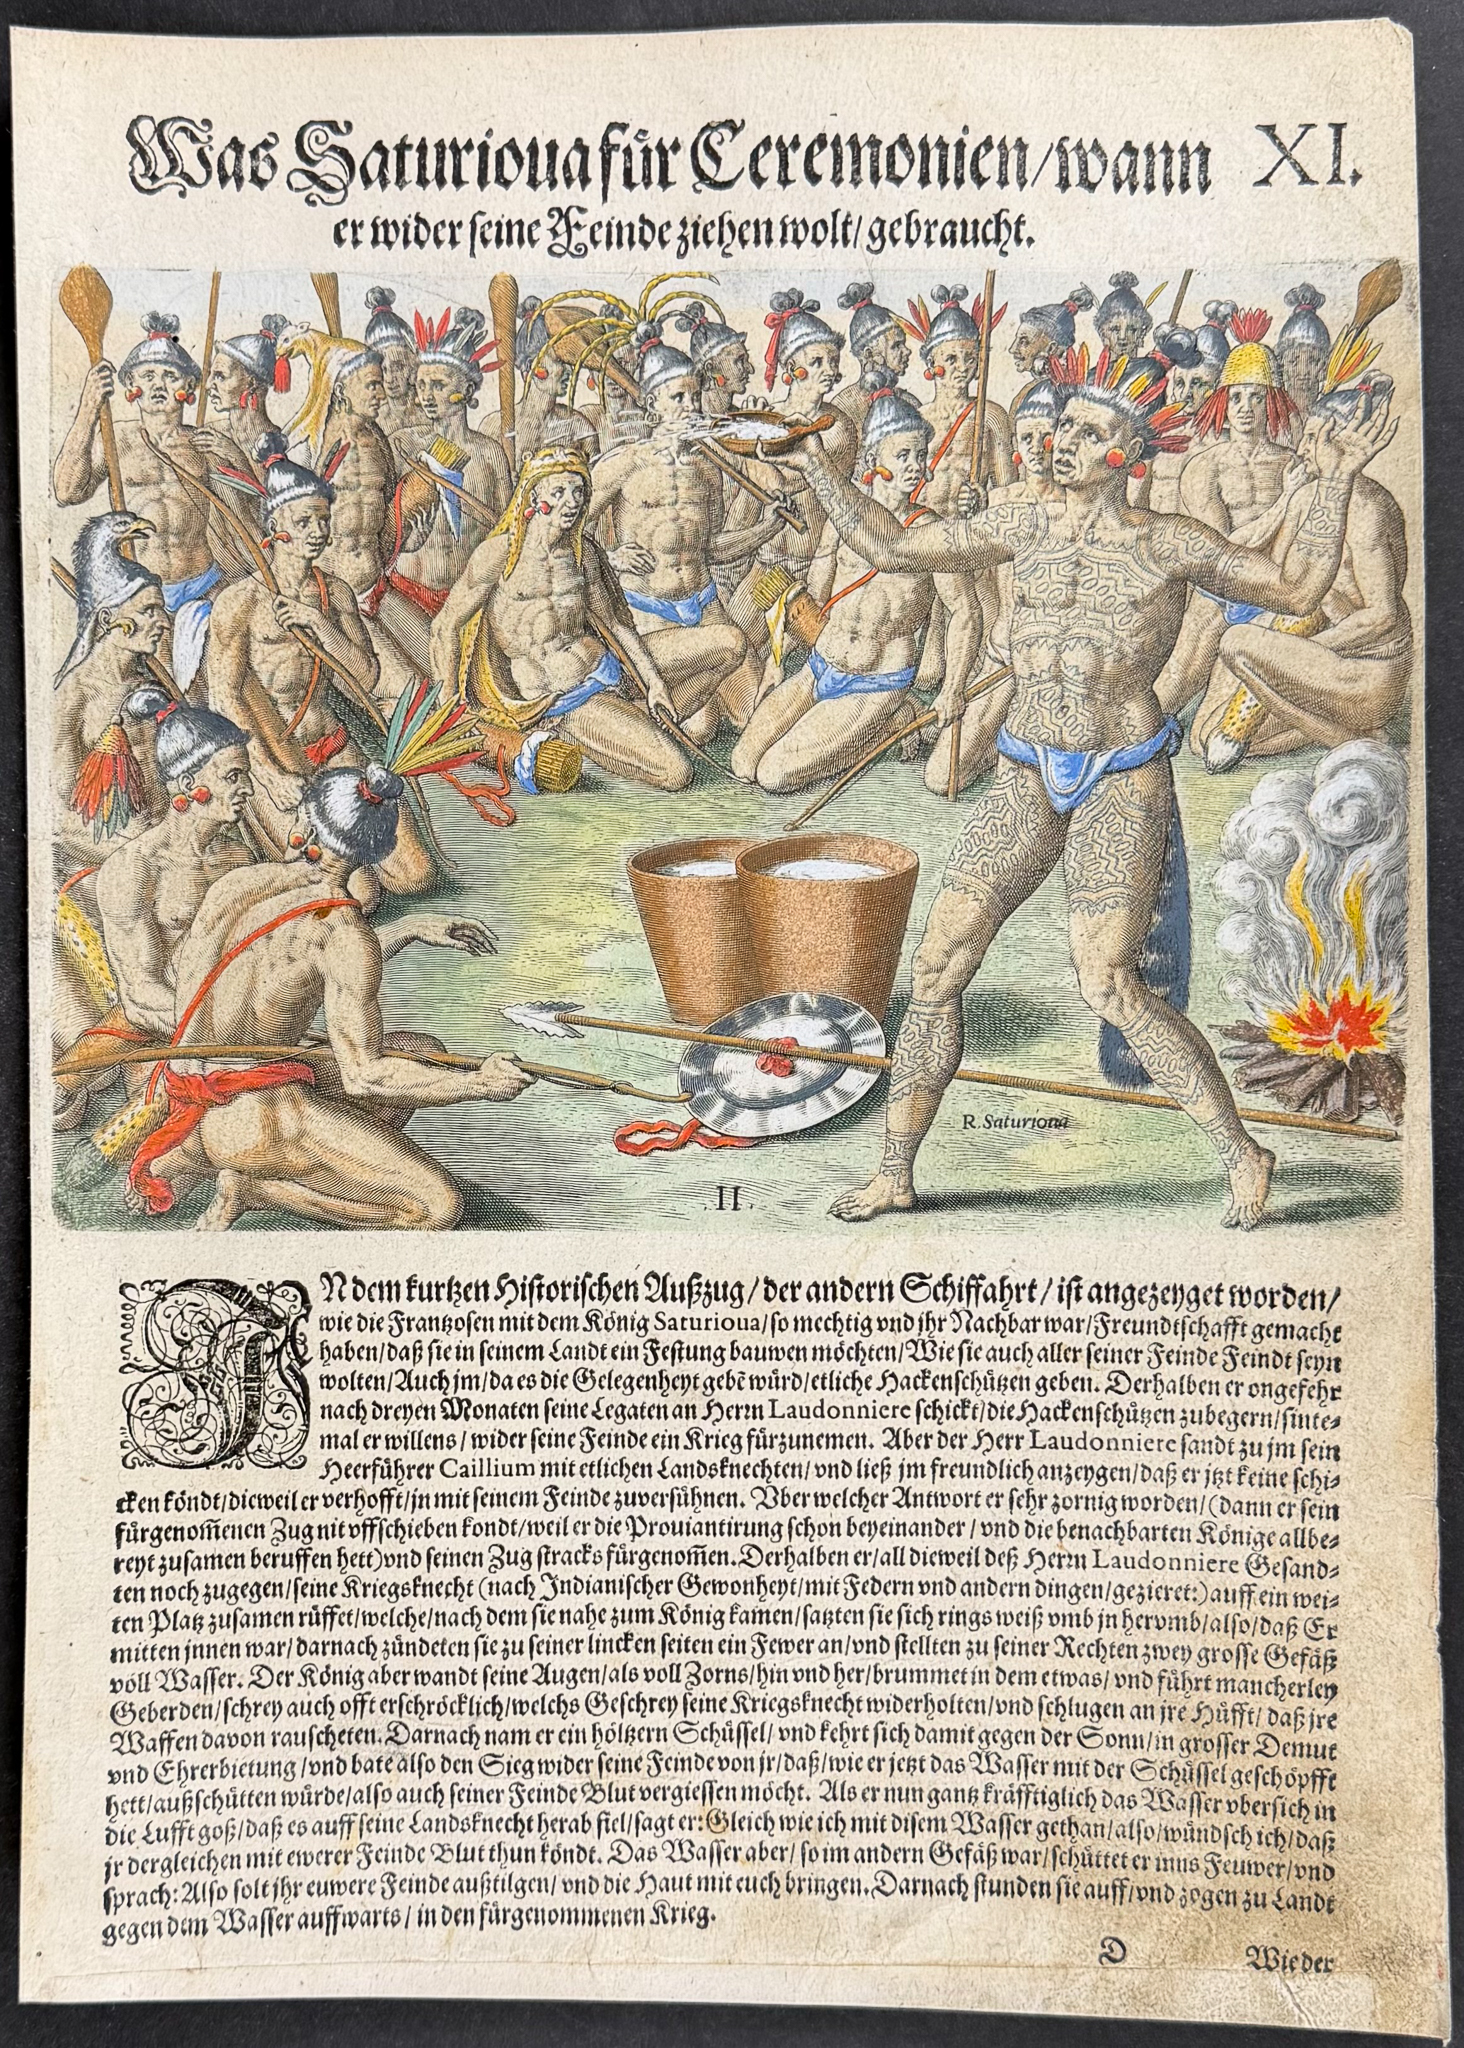 Was Saturioua für Ceremonien/wann XI.
er wider seine Feinde ziehen wolt/gebraucht.
R. Saturioua
II.
IN dem kurtzen Historischen Außzug/der andern Schiffahrt/ist angezeyget worden/
wie die Frantzosen mit dem König Saturioua/so mechtig vnd jhr Nachbar war/Freundtschafft gemacht
haben/daß sie in seinem Landt ein Festung bauwen möchten/Wie sie auch aller seiner Feinde Feindt seyn
wolten/Auch jm/da es die Gelegenheyt gebē würd/etliche Hackenschützen geben. Derhalben er ongefehr
nach dreyen Monaten seine Legaten an Herrn Laudonniere schickt/die Hackenschützen zubegern/sinte-
mal er willens/wider seine Feinde ein Krieg fürzunemen. Aber der Herr Laudonniere sandt zu jm sein
Heerführer Caillium mit etlichen Landsknechten/vnd ließ jm freundlich anzeygen/daß er jtzt keine schi-
cken köndt/dieweil er verhofft/jn mit seinem Feinde zuversühnen. Vber welcher Antwort er sehr zornig worden/(dann er sein
fürgenom̄enen Zug nit vffschieben kondt/weil er die Prouiantirung schon beyeinander/vnd die benachbarten Könige allbe-
reyt zusamen beruffen hett)vnd seinen Zug stracks fürgenom̄en. Derhalben er/all dieweil deß Herrn Laudonniere Gesand-
ten noch zugegen/seine Kriegsknecht (nach Indianischer Gewonheyt/mit Federn vnd andern dingen/gezieret:) auff ein wei-
ten Platz zusamen rüffet/welche/nach dem sie nahe zum König kamen/satzten sie sich rings weiß vmb jn hervmb/also/daß Er
mitten jnnen war/darnach zündeten sie zu seiner lincken seiten ein Fewer an/vnd stellten zu seiner Rechten zwey grosse Gefäß
voll Wasser. Der König aber wandt seine Augen/als voll Zorns/hin vnd her/brummet in dem etwas/vnd führt mancherley
Geberden/schrey auch offt erschröcklich/welchs Geschrey seine Kriegsknecht widerholten/vnd schlugen an jre Hüfft/daß jre
Waffen davon rauscheten. Darnach nam er ein höltzern Schüssel/vnd kehrt sich damit gegen der Sonn/in grosser Demut
vnd Ehrerbietung/vnd bate also den Sieg wider seine Feinde von jr/daß/wie er jetzt das Wasser mit der Schüssel geschöpfft
hett/außschütten würde/also auch seiner Feinde Blut vergiessen möcht. Als er nun gantz kräfftiglich das Wasser vbersich in
die Lufft goß/daß es auff seine Landsknecht herab fiel/sagt er: Gleich wie ich mit disem Wasser gethan/also/wündsch ich/daß
jr dergleichen mit ewerer Feinde Blut thun köndt. Das Wasser aber/so im andern Gefäß war/schüttet er inns Feuwer/vnd
sprach: Also solt jhr euwere Feinde außtilgen/vnd die Haut mit euch bringen. Darnach stunden sie auff/vnd zogen zu Landt
gegen dem Wasser auffwarts/in den fürgenommenen Krieg.
D Wieder